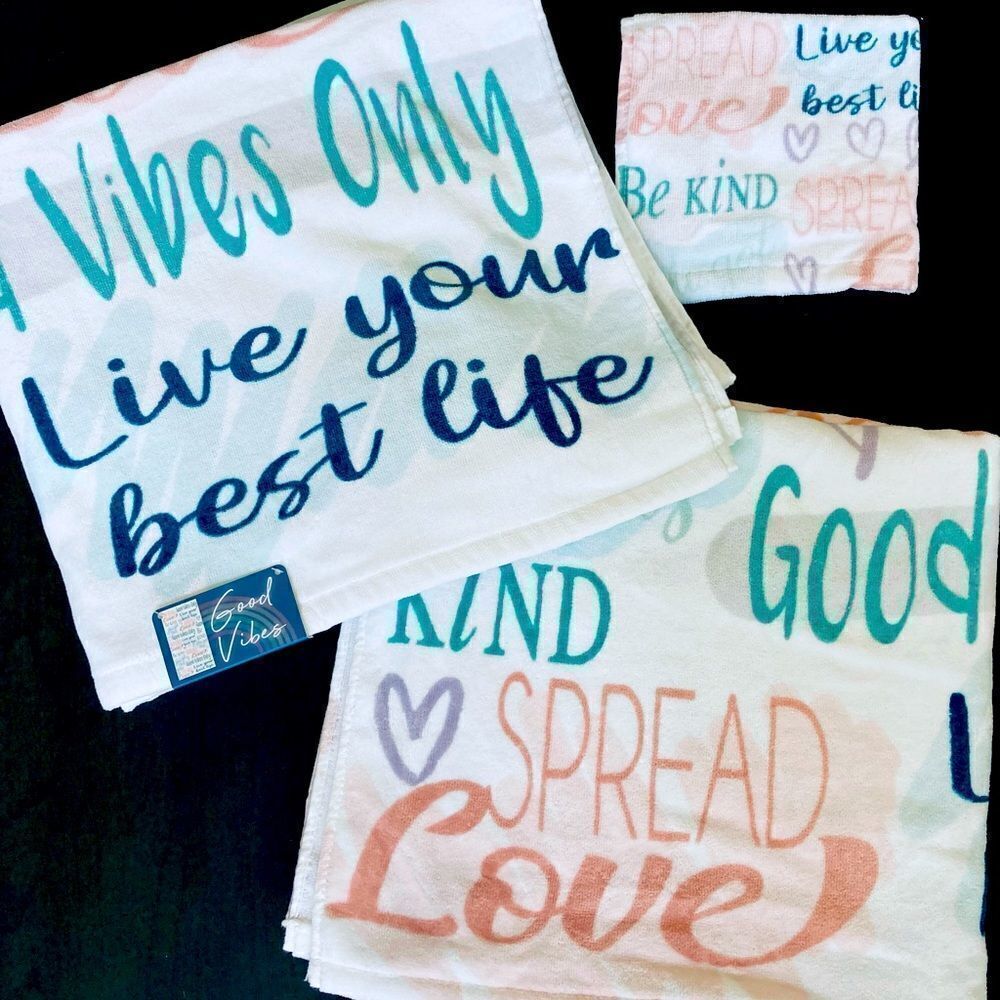 Vibes Only
Live your
best life
Good
Vibes
SPREAD
Love
Live yo
best li
Be KIND
SPREA
L
KIND
GOOd
SPREAD
Love
L